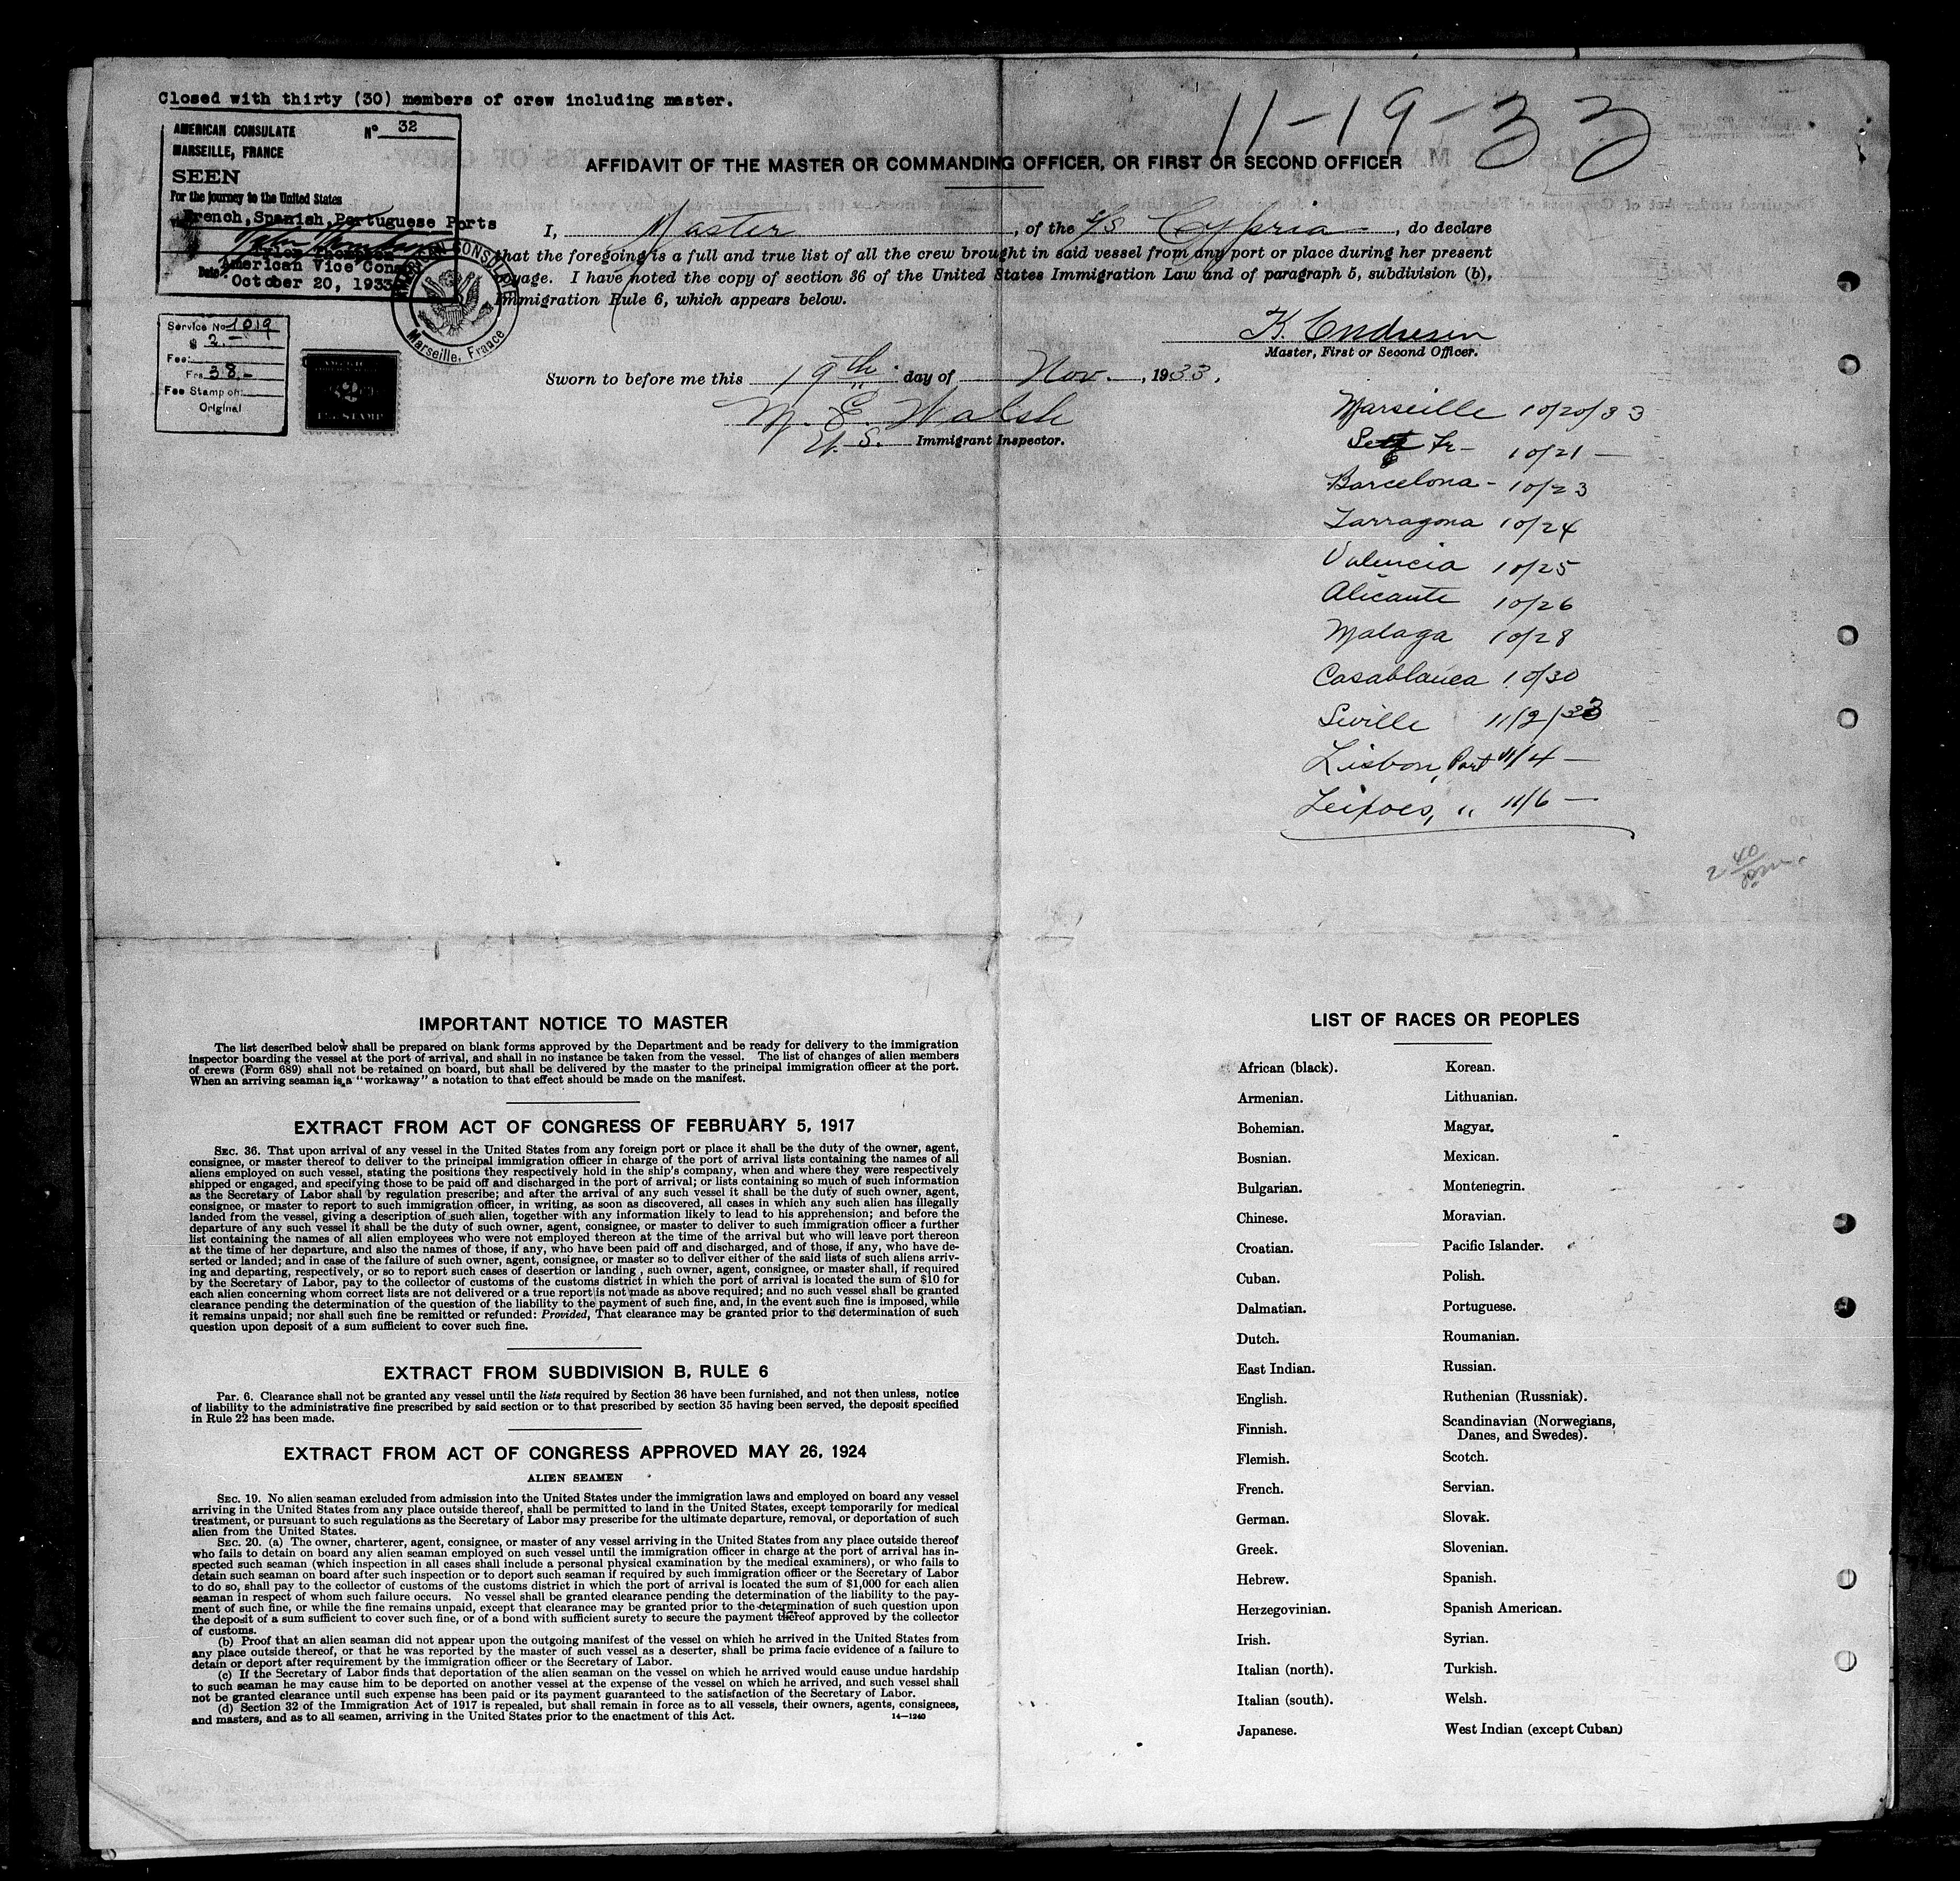 Closed with thirty (30) members of crew including master.
AMERICAN CONSULATE Nº 32
MARSEILLE, FRANCE
SEEN
For the journey to the United States
French, Spanish, Portuguese Ports
Thompson
American Vice Cons
Date: October 20, 1933
AMERICAN CONSULATE
Marseille, France
Service No 1019
$ 2.-
Fee:
Frs 38.-
Fee Stamp on
Original
2
FEE STAMP
11-19-33
AFFIDAVIT OF THE MASTER OR COMMANDING OFFICER, OR FIRST OR SECOND OFFICER
I, Master, of the S/S Cypria, do declare
that the foregoing is a full and true list of all the crew brought in said vessel from any port or place during her present
yage. I have noted the copy of section 36 of the United States Immigration Law and of paragraph 5, subdivision (b),
Immigration Rule 6, which appears below.
K. Endresen
Master, First or Second Officer.
Sworn to before me this 19th day of Nov., 1933.
M. E. Walsh
U. S. Immigrant Inspector.
Marseille 10/20/33
Fr- 10/21 —
Barcelona - 10/23
Tarragona 10/24
Valencia 10/25
Alicante 10/26
Malaga 10/28
Casablanca 10/30
Seville 11/2/33
Lisbon, Port 11/4 —
Leixoes, " 11/6 —
2 40 pm.
IMPORTANT NOTICE TO MASTER
The list described below shall be prepared on blank forms approved by the Department and be ready for delivery to the immigration
inspector boarding the vessel at the port of arrival, and shall in no instance be taken from the vessel. The list of changes of alien members
of crews (Form 689) shall not be retained on board, but shall be delivered by the master to the principal immigration officer at the port.
When an arriving seaman is a "workaway" a notation to that effect should be made on the manifest.
EXTRACT FROM ACT OF CONGRESS OF FEBRUARY 5, 1917
SEC. 36. That upon arrival of any vessel in the United States from any foreign port or place it shall be the duty of the owner, agent,
consignee, or master thereof to deliver to the principal immigration officer in charge of the port of arrival lists containing the names of all
aliens employed on such vessel, stating the positions they respectively hold in the ship's company, when and where they were respectively
shipped or engaged, and specifying those to be paid off and discharged in the port of arrival; or lists containing so much of such information
as the Secretary of Labor shall by regulation prescribe; and after the arrival of any such vessel it shall be the duty of such owner, agent,
consignee, or master to report to such immigration officer, in writing, as soon as discovered, all cases in which any such alien has illegally
landed from the vessel, giving a description of such alien, together with any information likely to lead to his apprehension; and before the
departure of any such vessel it shall be the duty of such owner, agent, consignee, or master to deliver to such immigration officer a further
list containing the names of all alien employees who were not employed thereon at the time of the arrival but who will leave port thereon
at the time of her departure, and also the names of those, if any, who have been paid off and discharged, and of those, if any, who have de-
serted or landed; and in case of the failure of such owner, agent, consignee, or master so to deliver either of the said lists of such aliens arriv-
ing and departing, respectively, or so to report such cases of desertion or landing, such owner, agent, consignee, or master shall, if required
by the Secretary of Labor, pay to the collector of customs of the customs district in which the port of arrival is located the sum of $10 for
each alien concerning whom correct lists are not delivered or a true report is not made as above required; and no such vessel shall be granted
clearance pending the determination of the question of the liability to the payment of such fine, and, in the event such fine is imposed, while
it remains unpaid; nor shall such fine be remitted or refunded: Provided, That clearance may be granted prior to the determination of such
question upon deposit of a sum sufficient to cover such fine.
EXTRACT FROM SUBDIVISION B, RULE 6
Par. 6. Clearance shall not be granted any vessel until the lists required by Section 36 have been furnished, and not then unless, notice
of liability to the administrative fine prescribed by said section or to that prescribed by section 35 having been served, the deposit specified
in Rule 22 has been made.
EXTRACT FROM ACT OF CONGRESS APPROVED MAY 26, 1924
ALIEN SEAMEN
SEC. 19. No alien seaman excluded from admission into the United States under the immigration laws and employed on board any vessel
arriving in the United States from any place outside thereof, shall be permitted to land in the United States, except temporarily for medical
treatment, or pursuant to such regulations as the Secretary of Labor may prescribe for the ultimate departure, removal, or deportation of such
alien from the United States.
SEC. 20. (a) The owner, charterer, agent, consignee, or master of any vessel arriving in the United States from any place outside thereof
who fails to detain on board any alien seaman employed on such vessel until the immigration officer in charge at the port of arrival has in-
spected such seaman (which inspection in all cases shall include a personal physical examination by the medical examiners), or who fails to
detain such seaman on board after such inspection or to deport such seaman if required by such immigration officer or the Secretary of Labor
to do so, shall pay to the collector of customs of the customs district in which the port of arrival is located the sum of $1,000 for each alien
seaman in respect of whom such failure occurs. No vessel shall be granted clearance pending the determination of the liability to the pay-
ment of such fine, or while the fine remains unpaid, except that clearance may be granted prior to the determination of such question upon
the deposit of a sum sufficient to cover such fine, or of a bond with sufficient surety to secure the payment thereof approved by the collector
of customs.
(b) Proof that an alien seaman did not appear upon the outgoing manifest of the vessel on which he arrived in the United States from
any place outside thereof, or that he was reported by the master of such vessel as a deserter, shall be prima facie evidence of a failure to
detain or deport after requirement by the immigration officer or the Secretary of Labor.
(c) If the Secretary of Labor finds that deportation of the alien seaman on the vessel on which he arrived would cause undue hardship
to such seaman he may cause him to be deported on another vessel at the expense of the vessel on which he arrived, and such vessel shall
not be granted clearance until such expense has been paid or its payment guaranteed to the satisfaction of the Secretary of Labor.
(d) Section 32 of the Immigration Act of 1917 is repealed, but shall remain in force as to all vessels, their owners, agents, consignees,
and masters, and as to all seamen, arriving in the United States prior to the enactment of this Act.
14—1240
LIST OF RACES OR PEOPLES
African (black). Korean.
Armenian. Lithuanian.
Bohemian. Magyar.
Bosnian. Mexican.
Bulgarian. Montenegrin.
Chinese. Moravian.
Croatian. Pacific Islander.
Cuban. Polish.
Dalmatian. Portuguese.
Dutch. Roumanian.
East Indian. Russian.
English. Ruthenian (Russniak).
Finnish. Scandinavian (Norwegians,
Danes, and Swedes).
Flemish. Scotch.
French. Servian.
German. Slovak.
Greek. Slovenian.
Hebrew. Spanish.
Herzegovinian. Spanish American.
Irish. Syrian.
Italian (north). Turkish.
Italian (south). Welsh.
Japanese. West Indian (except Cuban)